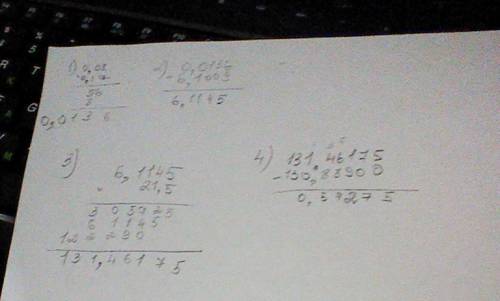 1) 0,08
0,17
56
8
0,0136
2) 0,0136
+ 6,1009
6,1145
3) 6,1145
21,5
3 05725
6 1145
12 2290
131,46175
4) 131,46175
-130,83900
0,59275